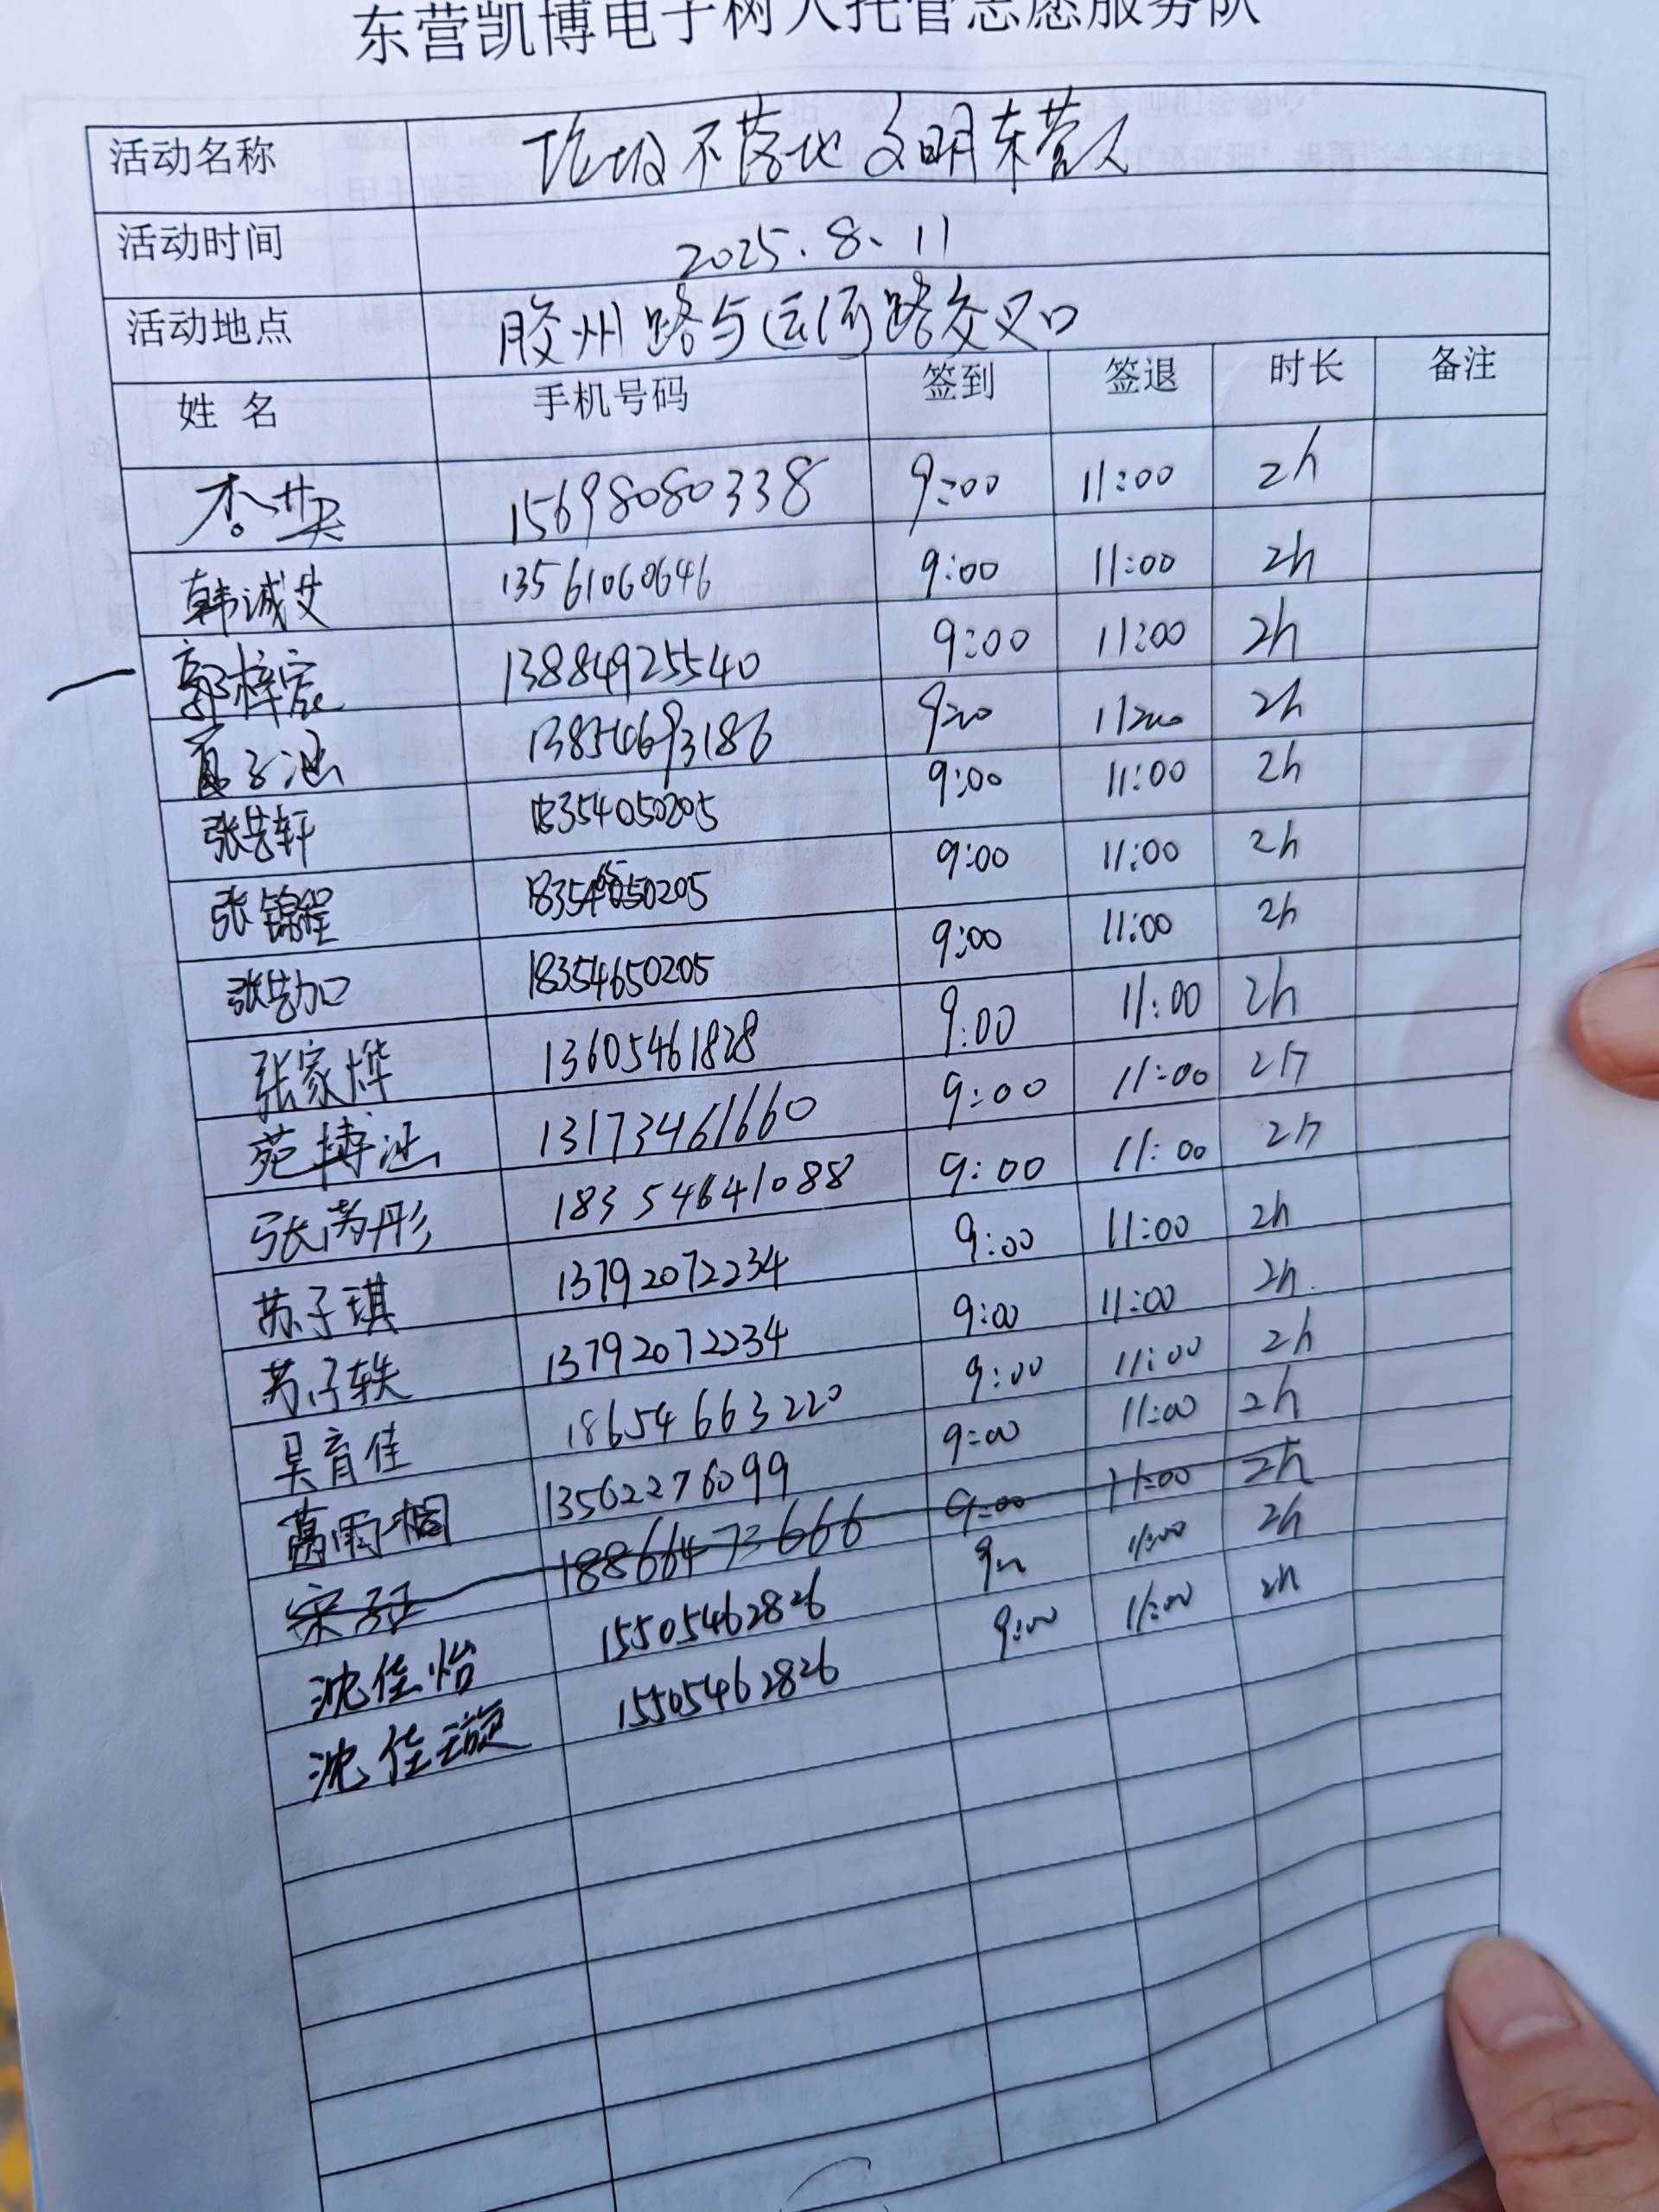 东营凯博电子树人托管志愿服务队
活动名称 垃圾不落地 文明东营人
活动时间 2025.8、11
活动地点 胶州路与运河路交叉口
姓 名 手机号码 签到 签退 时长 备注
15698080338 9:00 11:00 2h
韩诚艾 13561060646 9:00 11:00 2h
郭梓宸 13884925540 9:00 11:00 2h
夏子涵 13854693186 9:00 11:00 2h
张艺轩 18354050205 9:00 11:00 2h
张锦程 50205 9:00 11:00 2h
18354650205 9:00 11:00 2h
张家烨 13605461828 9:00 11:00 2h
苑博涵 13173461660 9:00 11:00 2h
张芮彤 18354641088 9:00 11:00 2h
苏子琪 13792072234 9:00 11:00 2h
苏子轶 13792072234 9:00 11:00 2h.
吴育佳 18654663220 9:00 11:00 2h
葛雨桐 13562276099 9:00 11:00 2h
宋 18866473666 9:00 11:00 2h
沈佳怡 15505462826 11:00 2h
沈佳璇 15505462826 9:00 11:00 2h